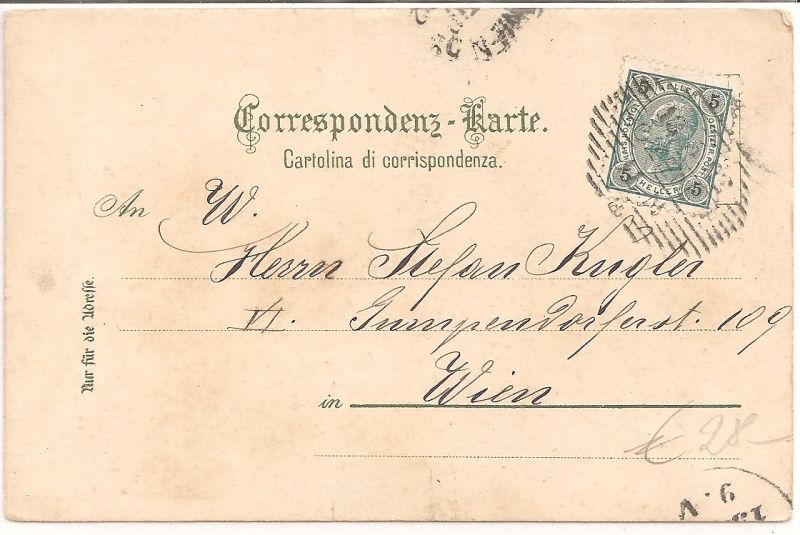 WIEN
Correspondenz-Karte.
Cartolina di corrispondenza.
5 HELLER 5
KAIS. KOENIGL. OESTERR. POST
5 HELLER 5
An W.
Herrn Stefan Kugler
VI. Gumpendorferst. 109
in Wien
Nur für die Adresse.
€ 28-
9. V